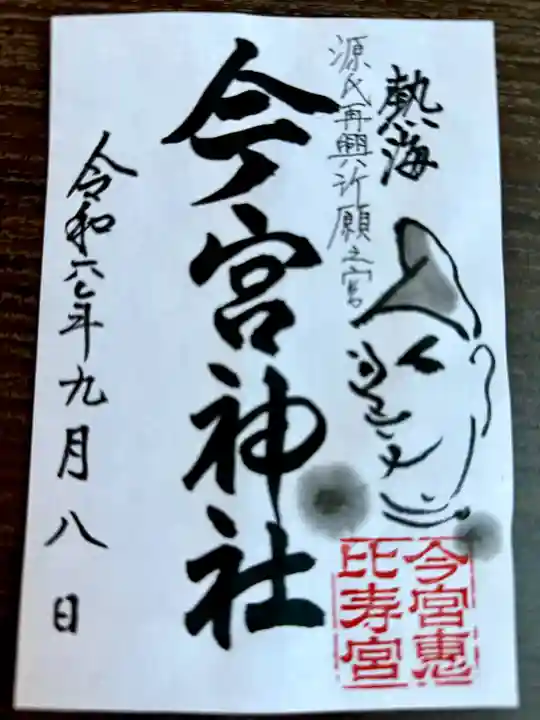 熱海
源氏再興祈願之宮
今宮神社
令和六年九月八日
今宮恵
比寿宮